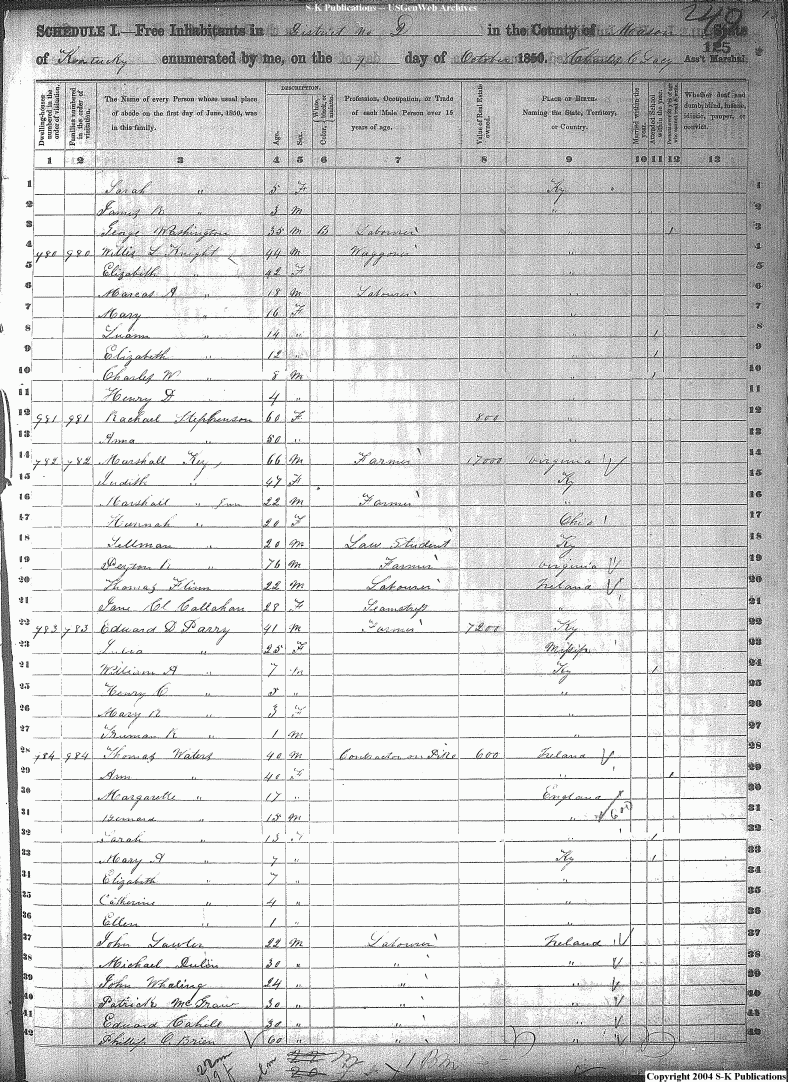 S-K Publications -- USGenWeb Archives
240
SCHEDULE I.—Free Inhabitants in District No 2 in the County of Mason State
of Kentucky enumerated by me, on the 9 day of October 1850. Charles C Lacy Ass't Marshal.
125
Dwelling-houses numbered in the order of visitation.
Families numbered in the order of visitation.
The Name of every Person whose usual place of abode on the first day of June, 1850, was in this family.
DESCRIPTION.
Age.
Sex.
Profession, Occupation, or Trade of each Male Person over 15 years of age.
Value of Real Estate owned.
PLACE OF BIRTH. Naming the State, Territory, or Country.
Married within the year.
Attended School within the year.
Whether deaf and dumb, blind, insane, idiotic, pauper, or convict.
1 2 3 4 5 6 7 8 9 10 11 12 13
1 Sarah " 5 F Ky 1
2 James R " 3 M " 2
3 George Washington 35 M B Labourer 1 3
4 980 Willis L Knight 44 M Waggoner " 4
5 Elizabeth " 42 F " 5
6 Marcas A " 18 M Labourer " 6
7 Mary " 16 F " 7
8 Luann " 14 " " 1 8
9 Elizabeth " 12 " " 1 9
10 Charles W " 8 M " 1 10
11 Henry D 4 " 11
12 981 981 Rachael Stephenson 60 F 800 " 12
13 Anna " 50 " " 13
14 782 782 Marshall Key 66 M Farmer 17000 Virginia 14
15 Judith " 47 F Ky 15
16 Marshall " Jun 22 M Farmer " 16
17 Hannah " 20 F Ohio 17
18 Tillman " 20 M Law Student Ky 18
19 Peyton R " 76 M Farmer Virginia 19
20 Thomas Flinn 22 M Labourer Ireland 20
21 Jane Callahan 28 F Seamstress " 21
22 783 783 Edward D Parry 41 M Farmer 7200 Ky 22
23 " 25 F Missip 23
24 William A " 7 M Ky 1 24
25 Henry C " 5 " " 25
26 Mary R " 3 F " 26
27 Truman R " 1 M " 27
28 784 984 Thomas Waters 40 M Contractor on Pike 600 Ireland 28
29 Ann " 40 F " 1 29
30 Margarette " 17 " England 30
31 Bernard " 15 M " 31
32 Sarah " 13 F " 1 32
33 Mary A " 7 " Ky 1 33
34 Elizabeth " 7 " " 34
35 Catherine " 4 " " 35
36 Ellen " 1 " " 36
37 John Lawler 22 M Labourer Ireland 37
38 Michael 30 " " " 38
39 John Whaling 24 " " " 39
40 Patrick McGraw 30 " " " 40
41 Edward Cahill 30 " " " 41
42 Phillip O Brien 60 " " " 42
22m
Copyright 2004 S-K Publications